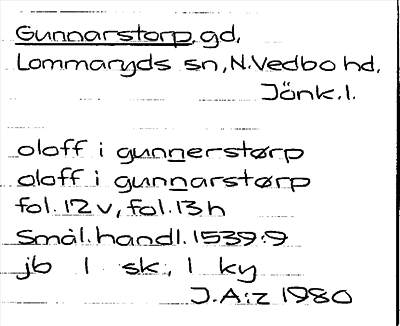 Gunnarstorp, gd,
Lommaryds sn, N. Vedbo hd,
Jönk. l.
oloff i gunnerstørp
oloff i gunnarstørp
fol. 12 v, fol. 13 h
Smål. handl. 1539:9
jb 1 sk, 1 ky
J.A:z 1980